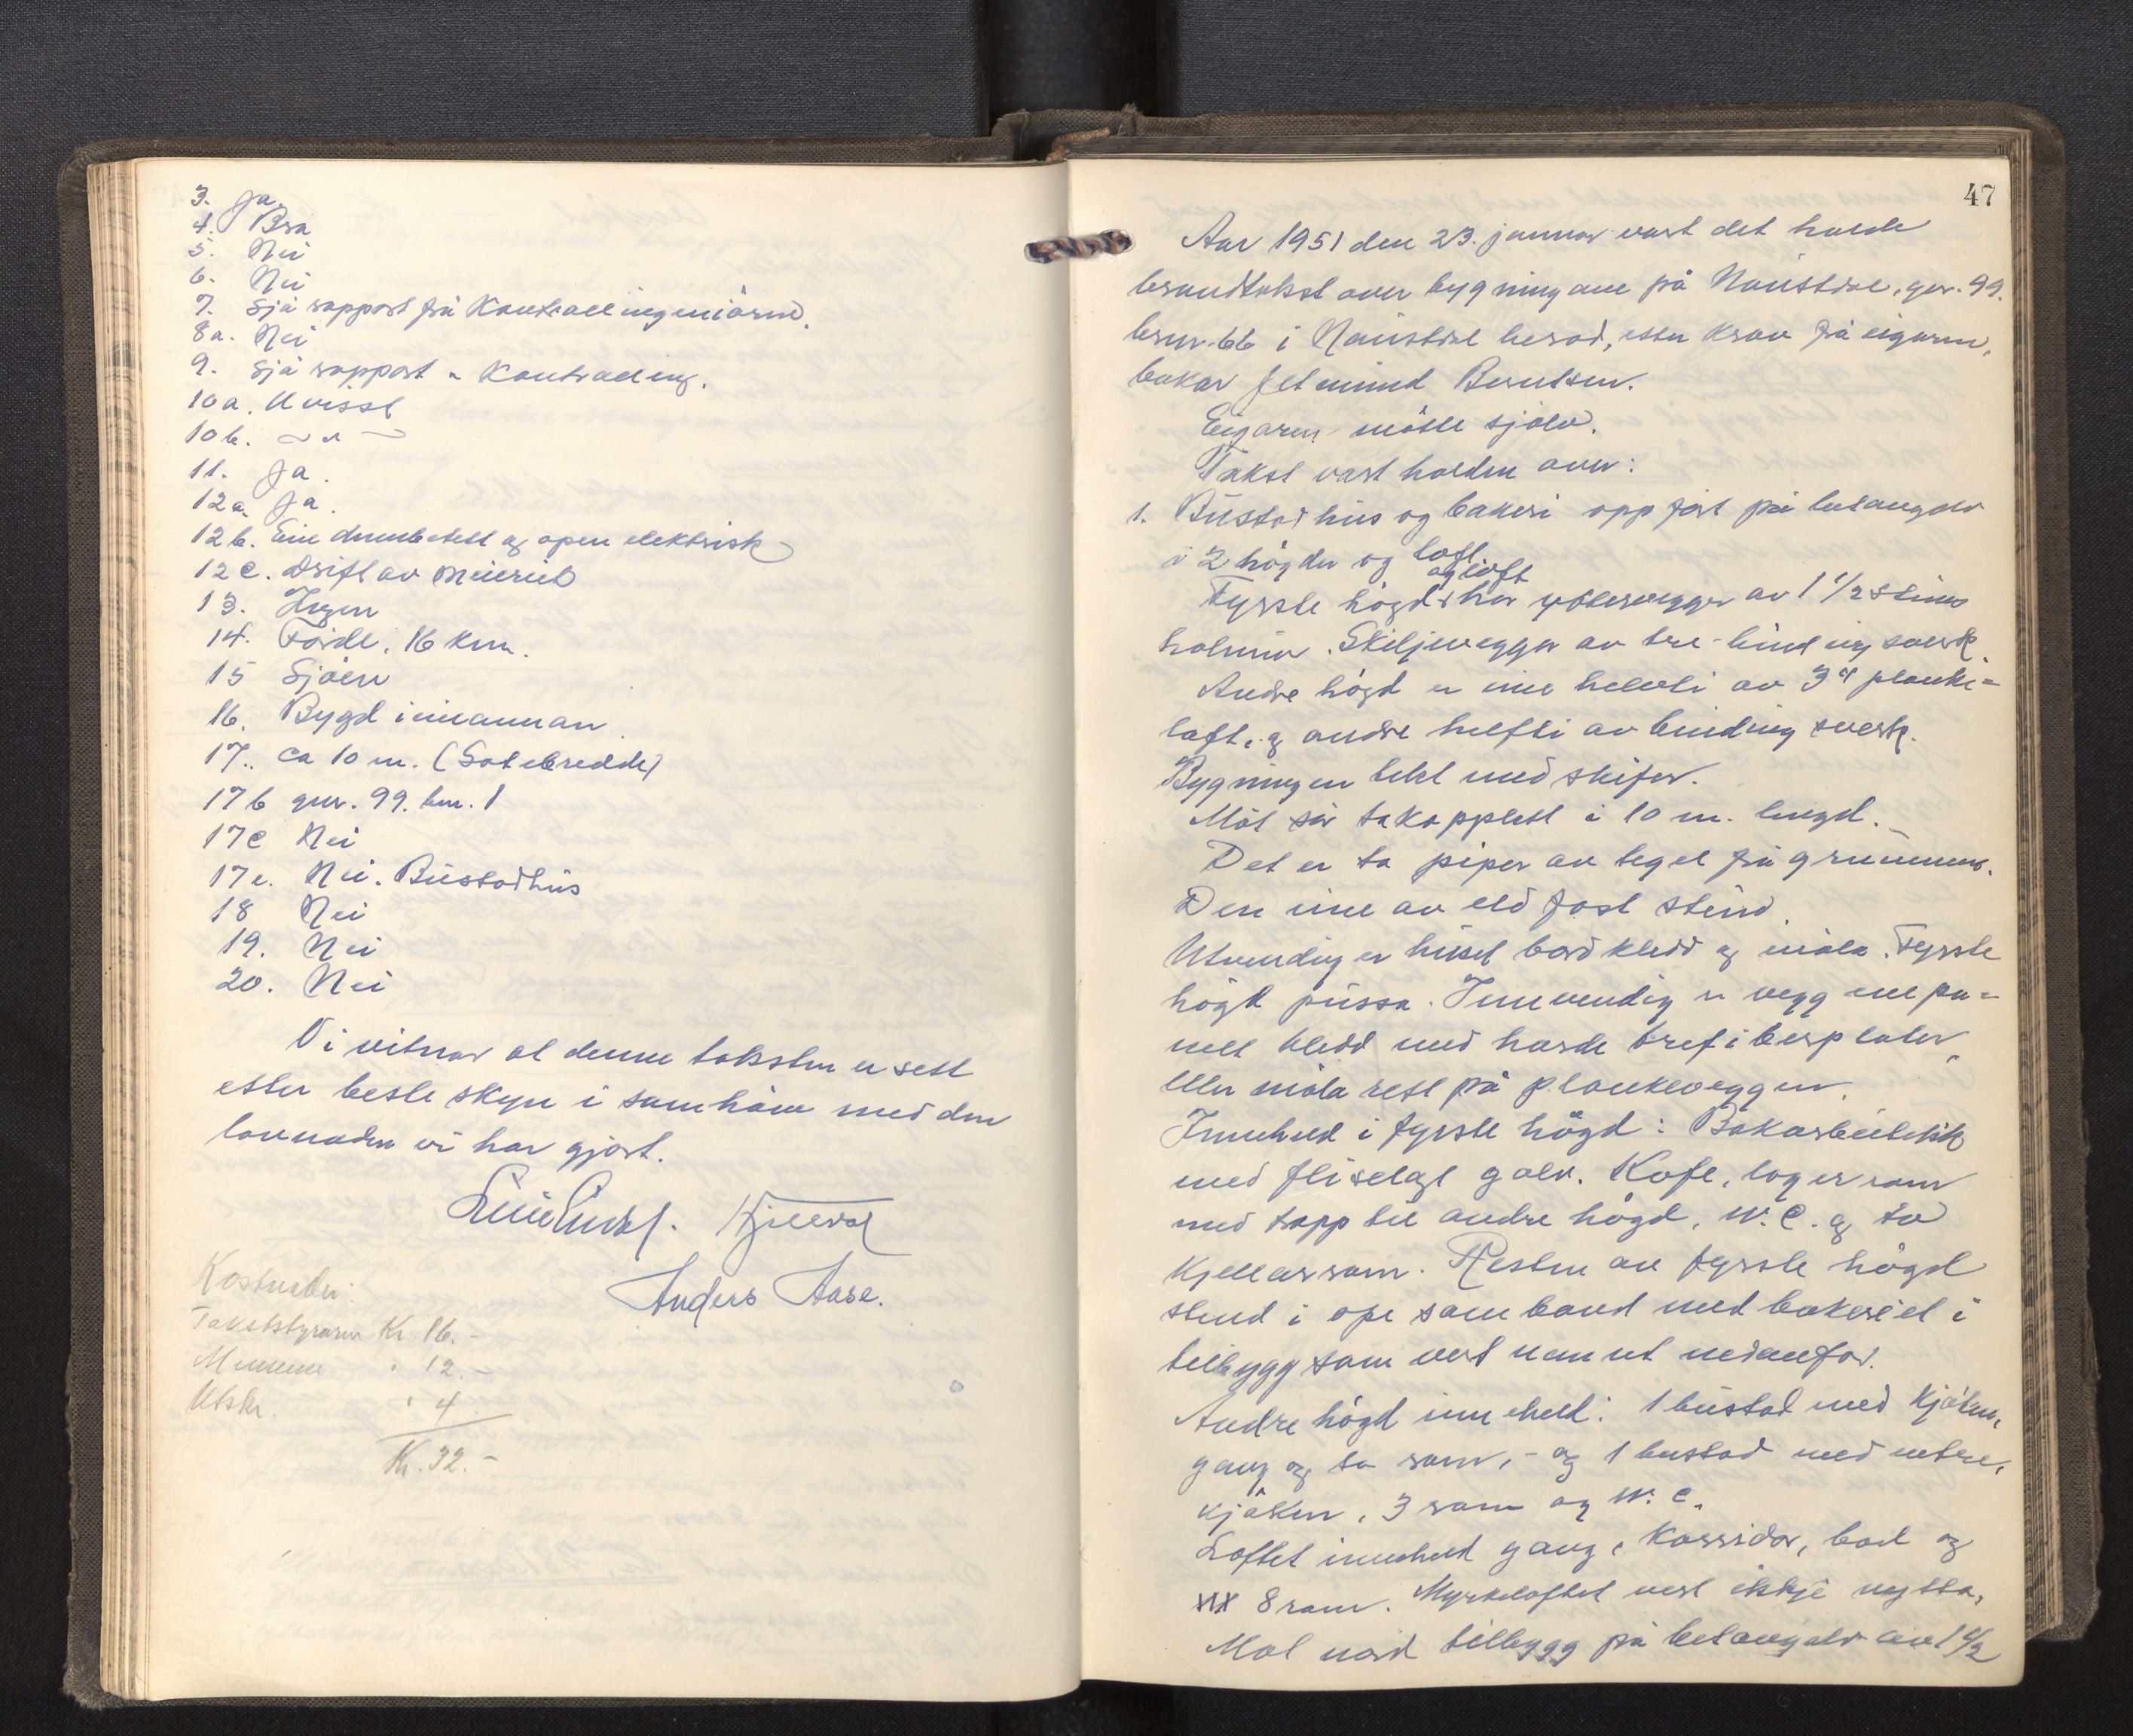 3. Ja.
4. Bra
5. Nei
6. Nei
7. Sjå rapport frå Kontrollingeniören.
8a. Nei
9. Sjå rapport " Kontrolling.
10a. Uvisst
10b. — " —
11. Ja.
12a. Ja.
12b. Ein dunkekjell og open elektrisk
12c. Drift av Meieriet
13. Ingen
14. Förde, 16 km.
15 Sjöen
16. Bygd i einannan
17. ca 10 m. (Gatebredde)
17b gnr. 99. bnr. 1
17c Nei
17e. Nei. Bustadhus
18 Nei
19. Nei
20. Nei
Vi vitnar at denne taksten er sett
etter beste skyn i samhöve med den
lovnaden vi har gjort.
Kjellevol
Anders Aase.
Kostnader:
Takststyraren Kr 16.-
Mennene " 12.-
Utskr. " 4
Kr. 32.-
47
Aar 1951 den 23. januar vart det halde
brandtakst over bygningane på Naustdal, gnr. 99.
bnr. 66 i Naustdal herad, etter krav frå eigaren,
bakar Berntsen.
Eigaren mötte sjölv.
Takst vart halden over:
1. Bustadhus og bakeri oppfört på betongolv
i 2 högder og loft.
og loft
Fyrste högd har yttervegger av 1 1/2 steins
holmur. Skiljevegger av tre-bindingsverk.
Andre högd er eine helvti av 3" planke=
laft, og andre helfti av bindingsverk.
Bygningen tekt med skifer.
Mot sör takopplett i 10 m. lengd.
Det er to piper av tegel frå grunnen.
Den eine av eldfast stein.
Utvendig er huset bordkledd og måla. Fyrste
högd pussa. Innvendig er veggene pa=
nell kledd med harde trefiberplater
eller måla rett på plankeveggen.
Inneheld i fyrste högd: Bakarbutikk
med fliselagt golv. Kafe, lagerrom
med trapp til andre högd, W.C. og to
kjellarrom. Resten av fyrste högd
stend i ope samband med bakeriet i
tilbygg som vert nemnt nedanfor.
Andre högd inneheld: 1 bustad med kjöken,
gang og to rom, - og 1 bustad med entre,
kjöken, 3 rom og W.C.
Loftet inneheld gang, korridor, bad og
8 rom. Myrkeloftet vert ikkje nytta.
Mot nord tilbygg på betongolv av 1 1/2